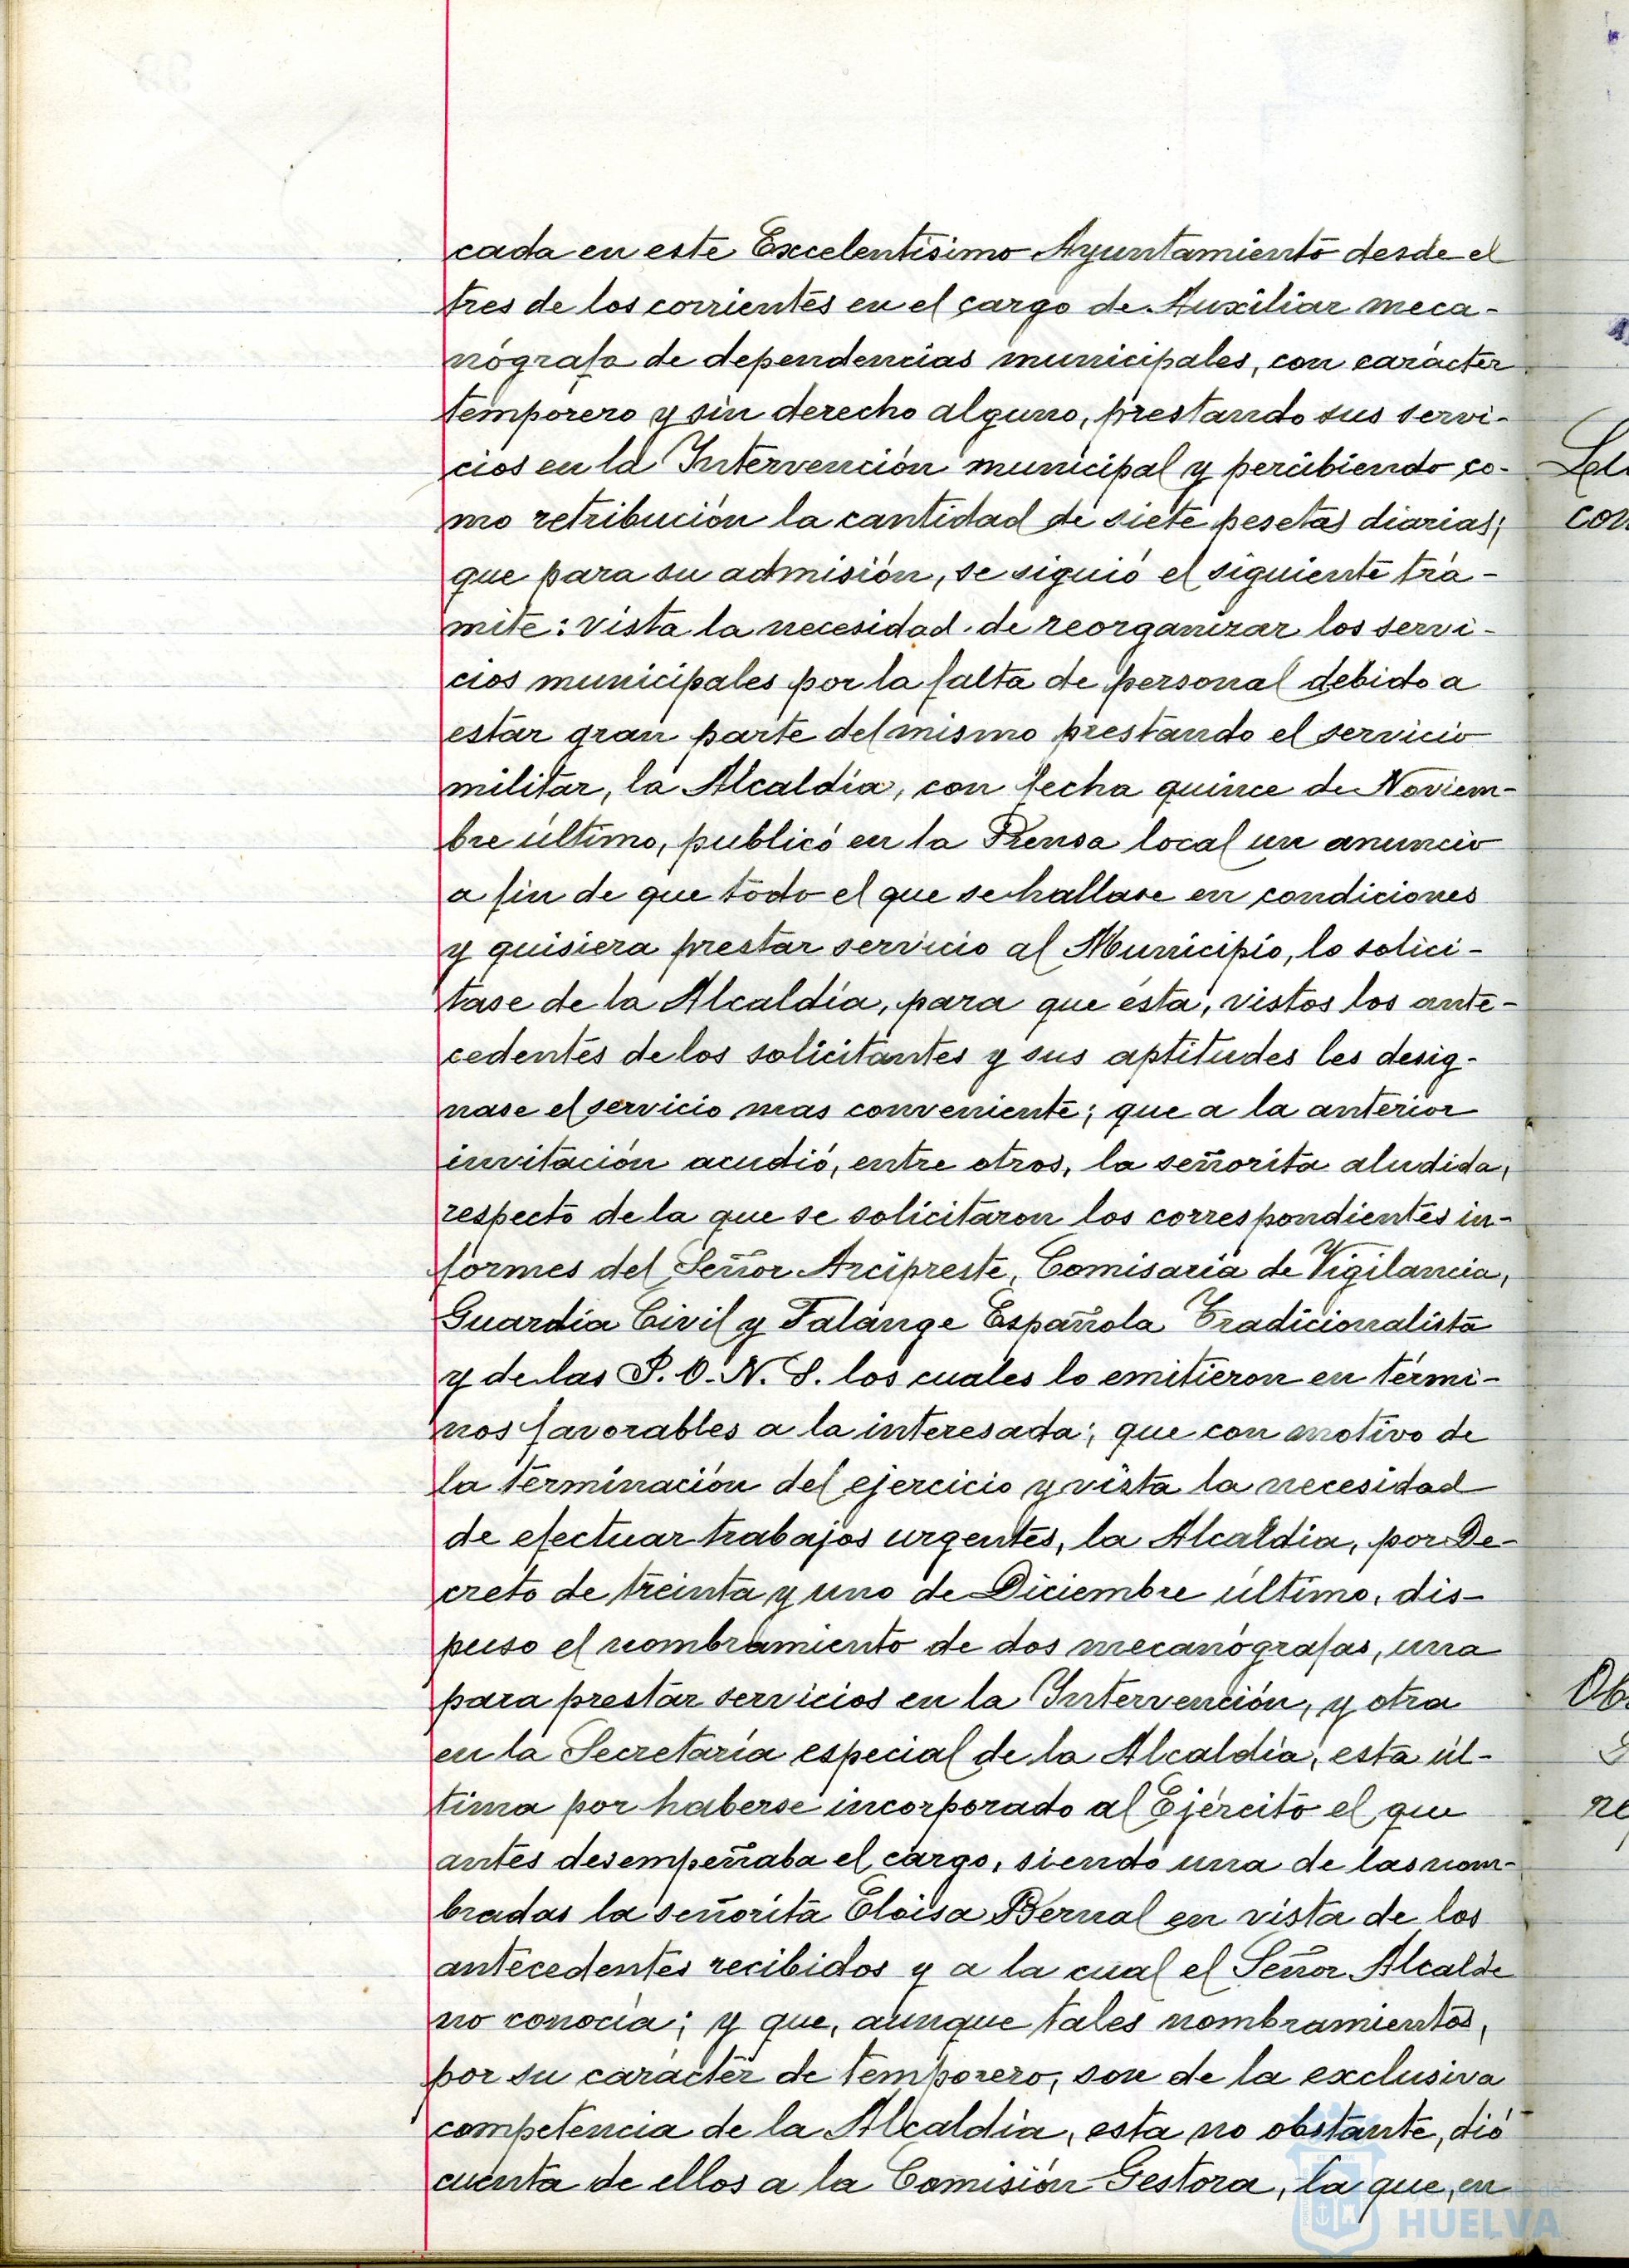 cada en este Excelentísimo Ayuntamiento desde el
tres de los corrientes en el cargo de Auxiliar meca-
nógrafa de dependencias municipales, con carácter
temporero y sin derecho alguno, prestando sus servi-
cios en la Intervención municipal y percibiendo co-
mo retribución la cantidad de siete pesetas diarias;
que para su admisión, se siguió el siguiente trá-
mite: vista la necesidad de reorganizar los servi-
cios municipales por la falta de personal debido a
estar gran parte del mismo prestando el servicio
militar, la Alcaldía, con fecha quince de Noviem-
bre último, publicó en la Prensa local un anuncio
a fin de que todo el que se hallase en condiciones
y quisiera prestar servicio al Municipio, lo solici-
tase de la Alcaldía, para que ésta, vistos los ante-
cedentes de los solicitantes y sus aptitudes les desig-
nase el servicio mas conveniente; que a la anterior
invitación acudió, entre otros, la señorita aludida,
respecto de la que se solicitaron los correspondientes in-
formes del Señor Arcipreste, Comisaría de Vigilancia,
Guardia Civil y Falange Española Tradicionalista
y de las J.O.N.S. los cuales lo emitieron en térmi-
nos favorables a la interesada; que con motivo de
la terminación del ejercicio y vista la necesidad
de efectuar trabajos urgentes, la Alcaldía, por De-
creto de treinta y uno de Diciembre último, dis-
puso el nombramiento de dos mecanógrafas, una
para prestar servicios en la Intervención, y otra
en la Secretaría especial de la Alcaldía, esta úl-
tima por haberse incorporado al Ejército el que
antes desempeñaba el cargo, siendo una de las nom-
bradas la señorita Eloisa Bernal en vista de los
antecedentes recibidos y a la cual el Señor Alcalde
no conocía; y que, aunque tales nombramientos,
por su carácter de temporero, son de la exclusiva
competencia de la Alcaldía, esta no obstante, dió
cuenta de ellos a la Comisión Gestora, la que, en
HUELVA